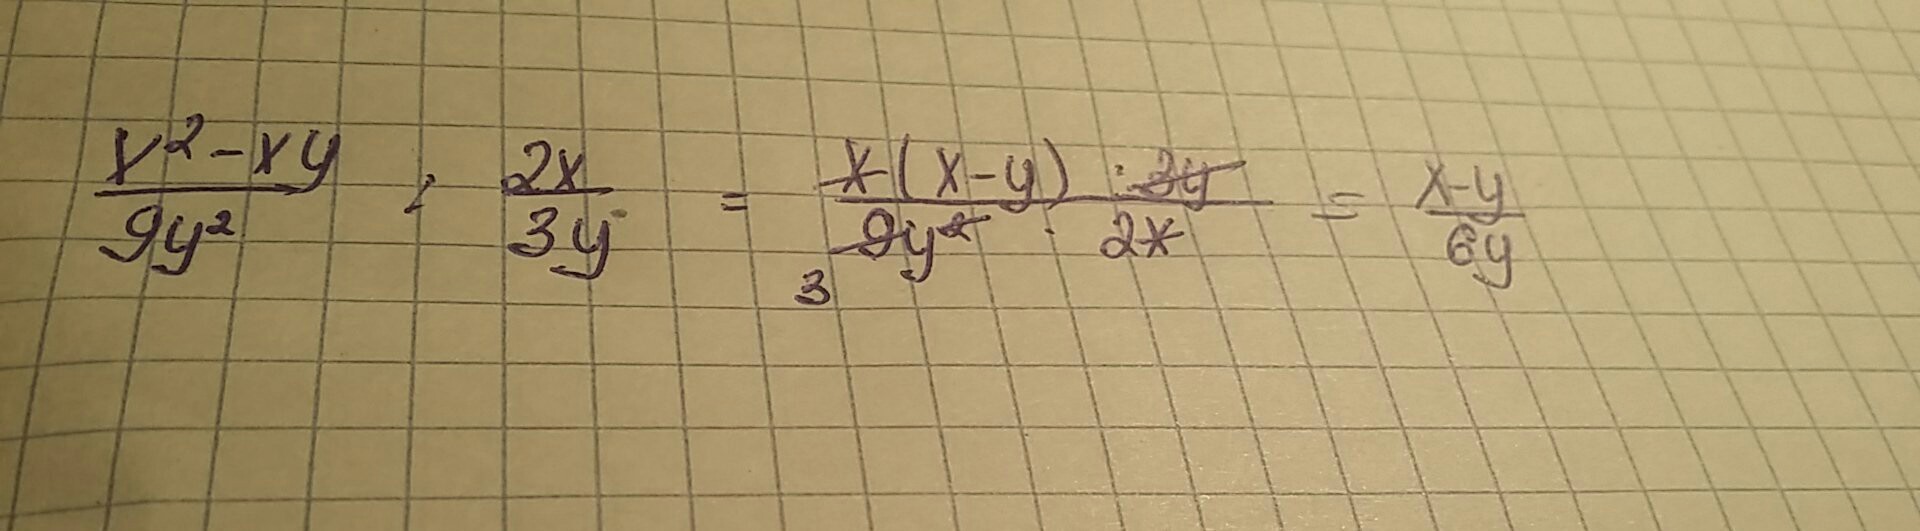 x²-xy/9y² : 2x/3y = x(x-y)·3y/9y²·2x = x-y/6y
3